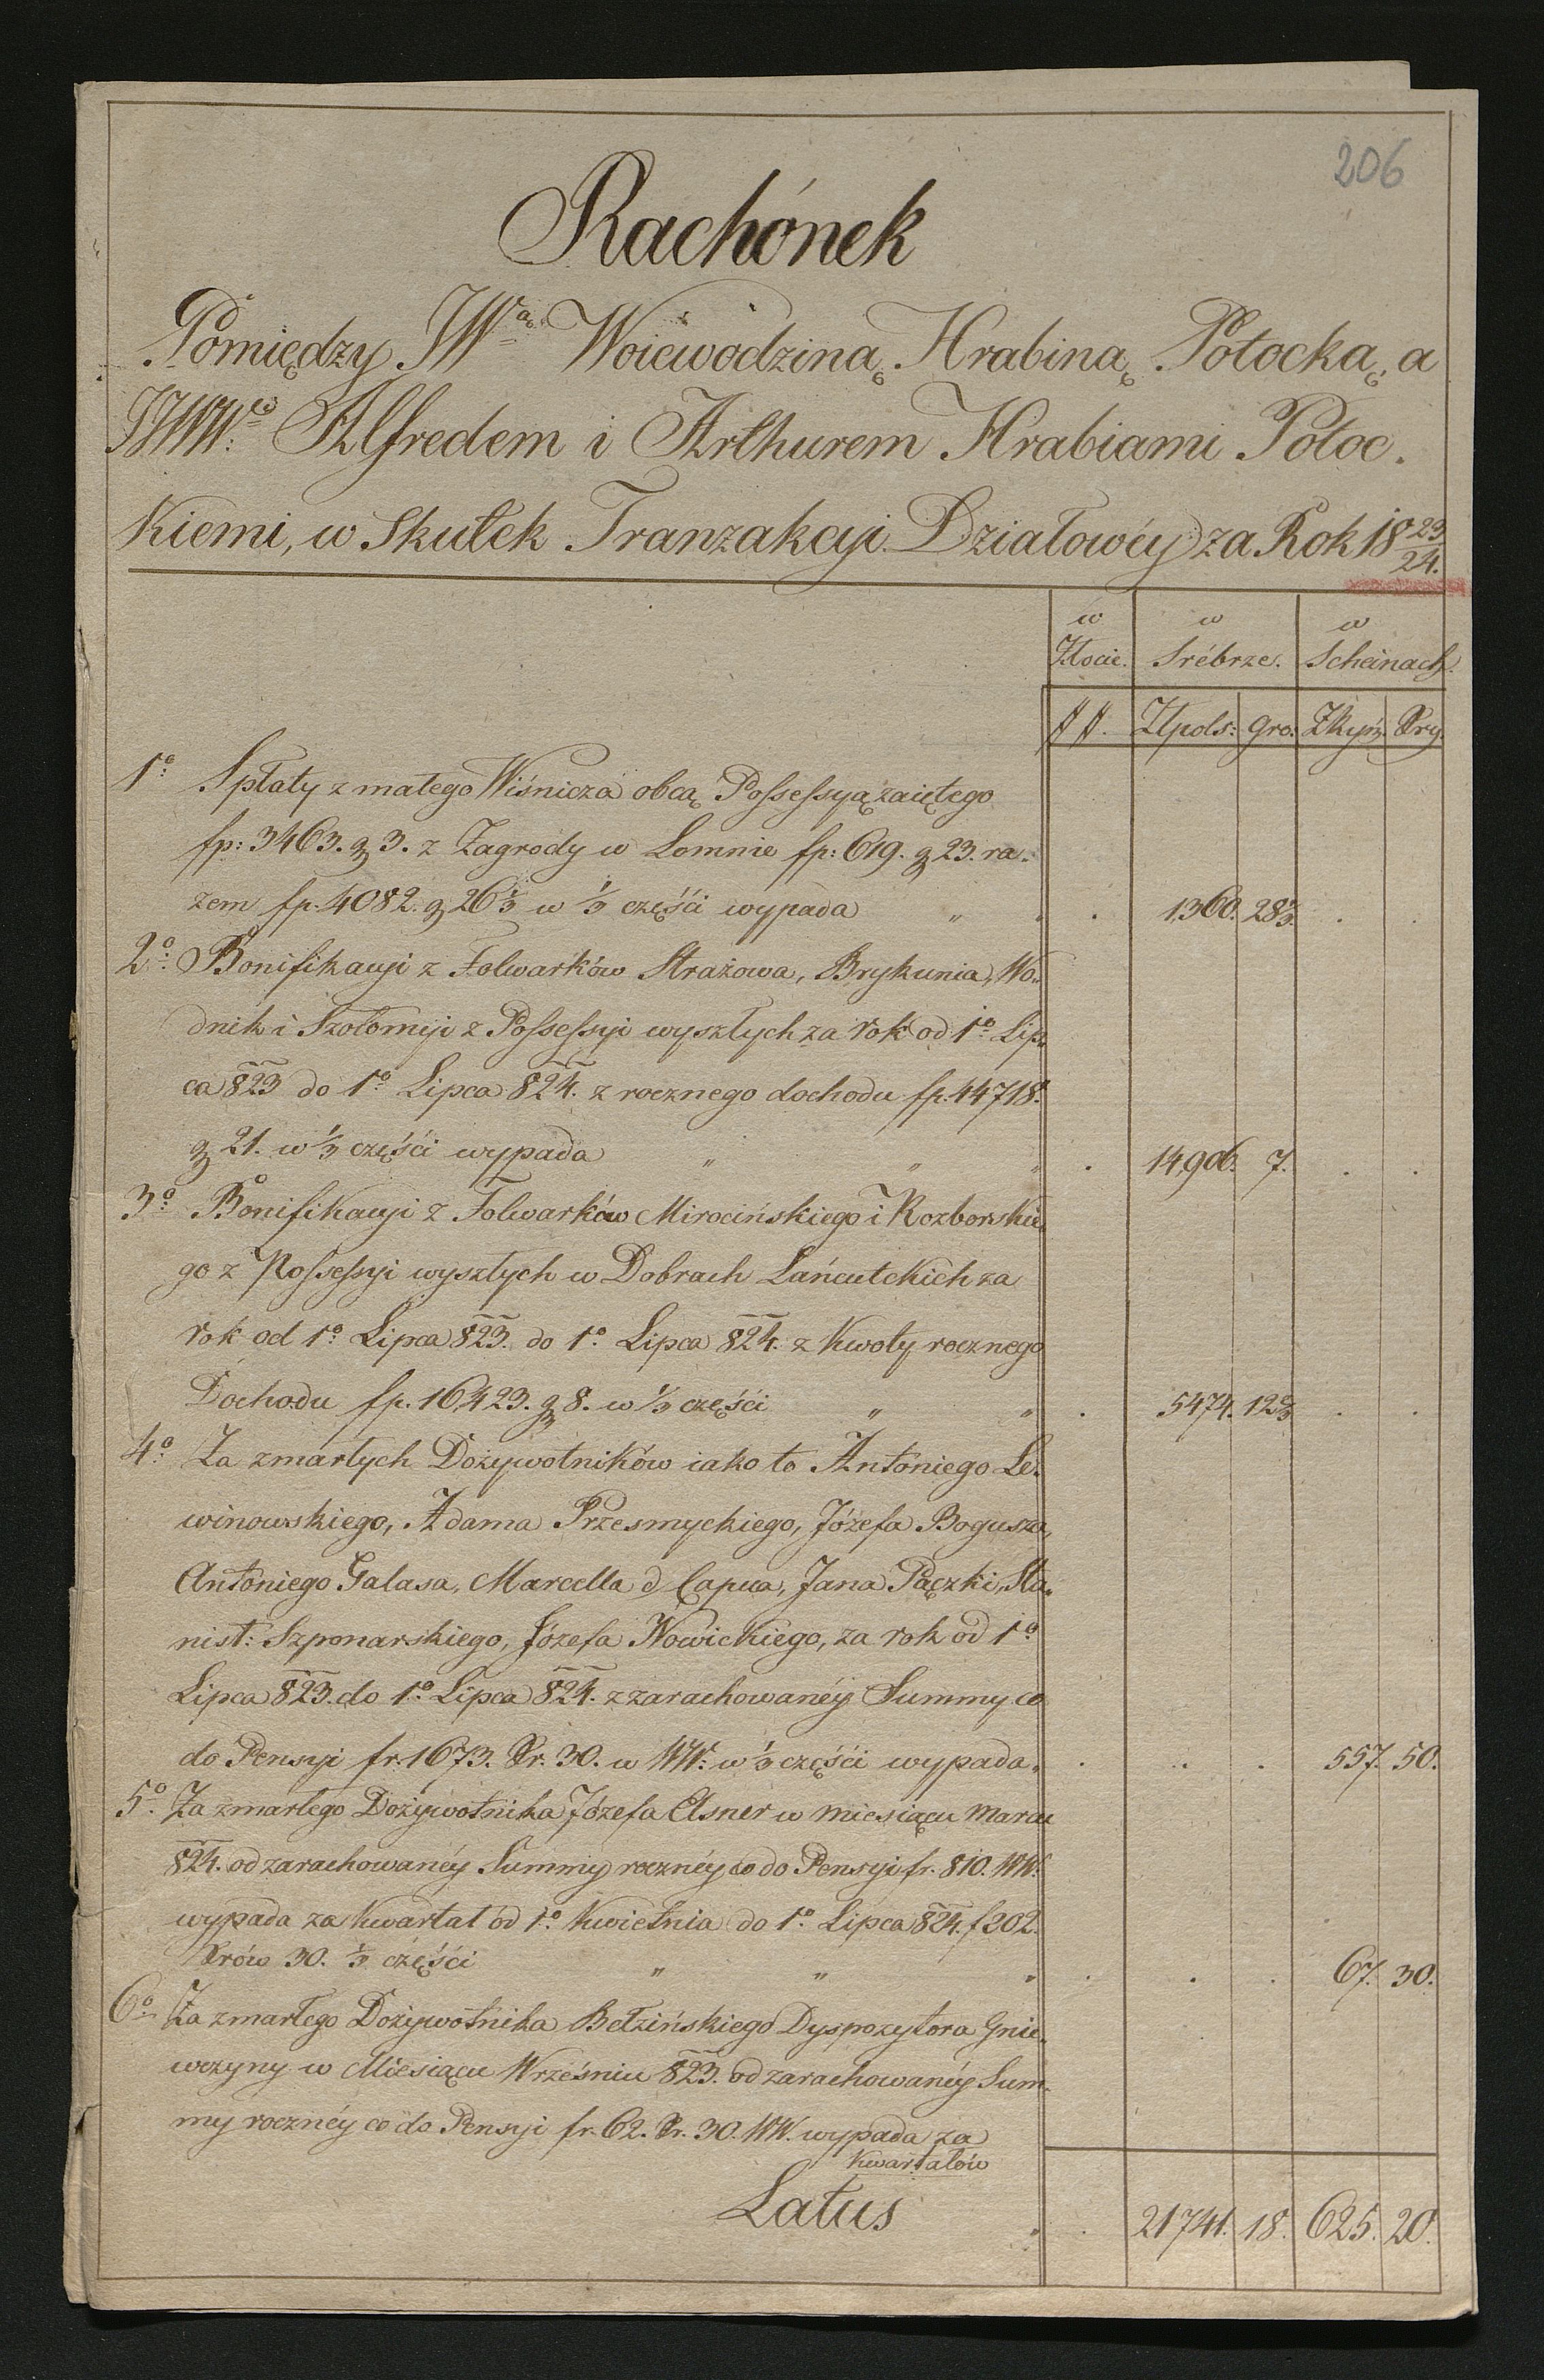 206
Rachónek
Pomiędzy JWą Woiewodziną Hrabiną Potocką, a
JJWW: Alfredem i Arthurem Hrabiami Potoc.
Kiemi, w Skutek Tranzakcyi Działowéy za Rok 18 23/24.
w Złocie. w Srébrze. w Scheinach.
## Złpols: gro: ZRyń: Xry.
1o Spłaty z małego Wiśnicza obcą Possessyą zaiętego
fp: 3463. g 3. z Zagrody w Łomnie fp: 619. g 23. ra.
zem fp. 4082. g 26 1/3 w 1/3 części wypada " " . 1,360. 28 2/3. . .
2o: Bonifikacyi z Folwarków Strażowa, Brykunia, Wo.
dnik i Szołomyi z Possessyi wyszłych za rok od 1o Lip.
ca 823 do 1o Lipca 824. z rocznego dochodu fp. 44718.
g 21. w 1/3 części wypada " " " . 14,906. 7. . .
3o Bonifikacyi z Folwarków Mirocińskiego i Rozborskie
go z Possessyi wyszłych w Dobrach Łańcutckich za
rok od 1o Lipca 823. do 1o Lipca 824. z Kwoty rocznego
Dochodu fp. 16,423. g 8. w 1/3 części " " . 5474. 12 2/3 . .
4o Za zmarłych Dożywotników iako to Antoniego Le.
winowskiego, Adama Przesmyckiego, Józefa Bogusza,
Antoniego Galasa, Marcella d Capua, Jana Pączki, Sta.
nisł: Szponarskiego, Józefa Nowickiego, za rok od 1o
Lipca 823. do 1o Lipca 824. z zarachowanéy Summy co
do Pensyi fr. 1673. Xr. 30. w WW: w 1/3 części wypada. . .. . 557. 50.
5o. Za zmarłego Dożywotnika Józefa Elsner w miesiącu Marcu
824. od zarachowanéy Summy rocznéy co do Pensyi fr. 810. WW.
wypada za Kwartał od 1o Kwietnia do 1o Lipca 824. f 202.
Xrów 30. 1/3 części " " " . . . 67. 30.
6o Za zmarłego Dożywotnika Bełzińskiego Dyspozytora Gnie.
wczyny w Miesiącu Wrześniu 823. od zarachowanéy Sum.
my rocznéy co do Pensyi fr. 62. Xr. 30. WW. wypada za
Kwartałów
Latus . . 21741. 18. 625. 20.